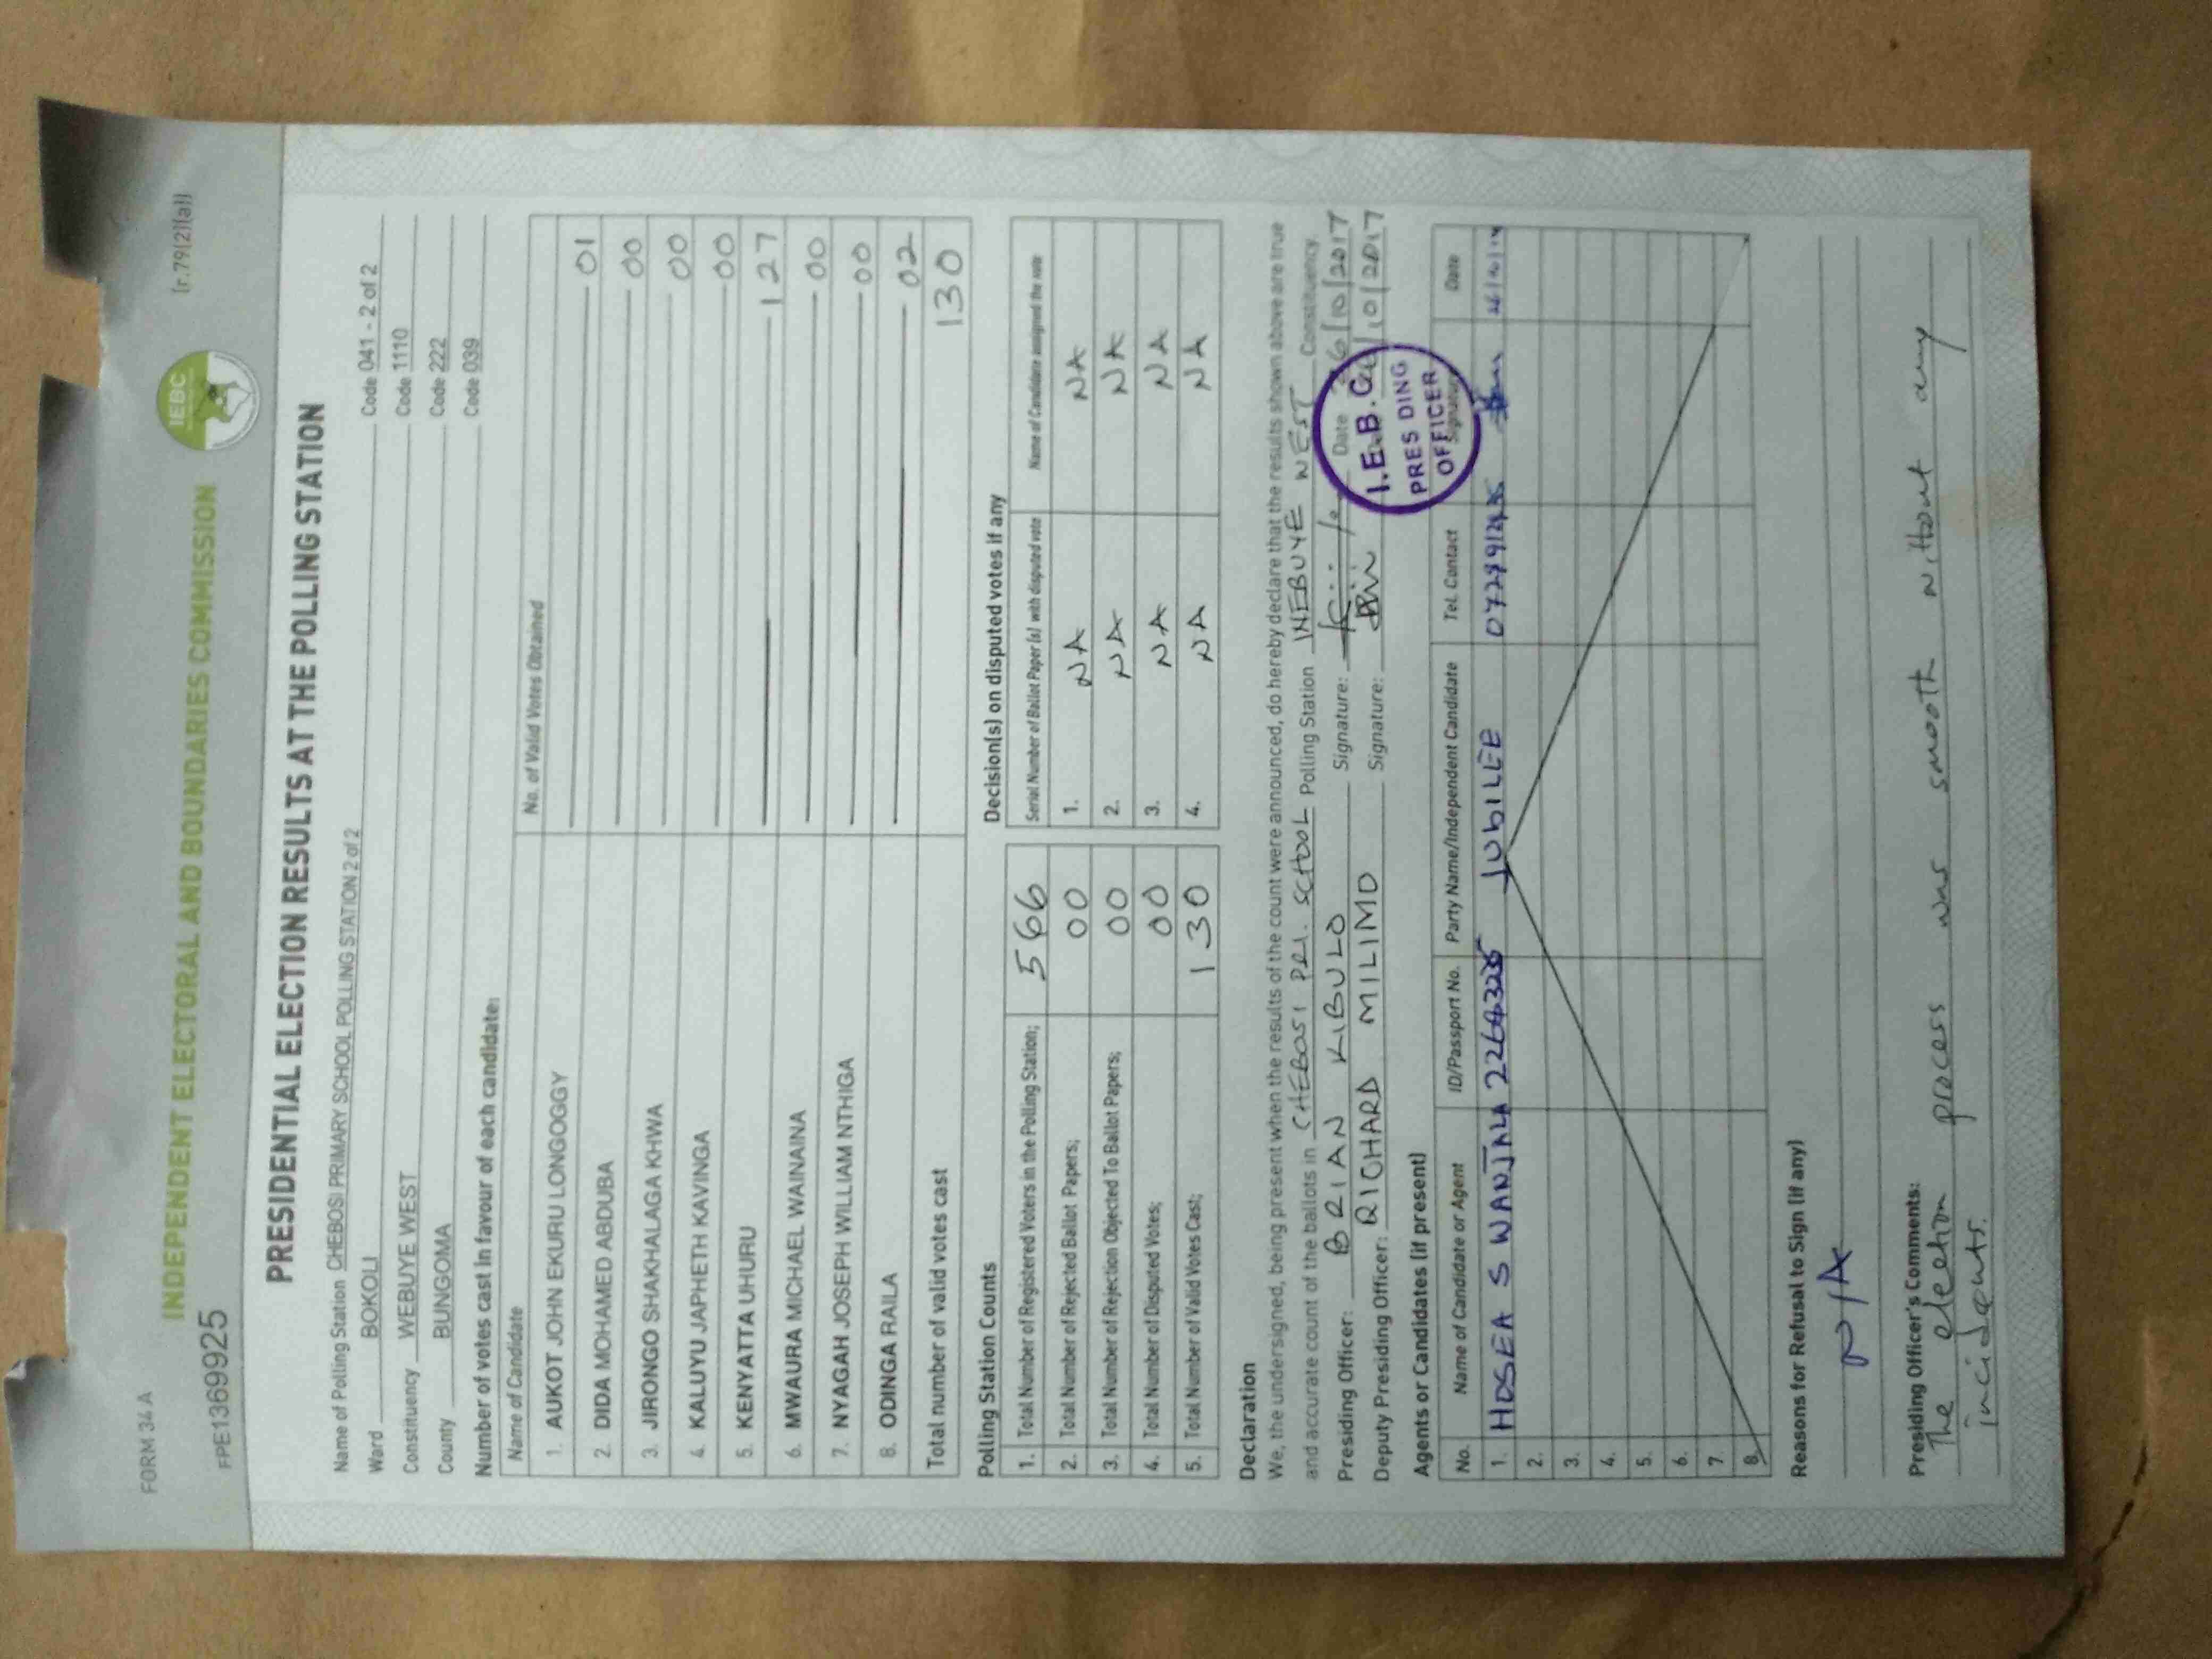 FORM 34 A
INDEPENDENT ELECTORAL AND BOUNDARIES COMMISSION
IEBC
(r.79(2)(a))
FPE1369925
PRESIDENTIAL ELECTION RESULTS AT THE POLLING STATION
Name of Polling Station CHEBOSI PRIMARY SCHOOL POLLING STATION 2 of 2 Code 041 - 2 of 2
Ward BOKOLI Code 1110
Constituency WEBUYE WEST Code 222
County BUNGOMA Code 039
Number of votes cast in favour of each candidate:
Name of Candidate No. of Valid Votes Obtained
1. AUKOT JOHN EKURU LONGOGGY 01
2. DIDA MOHAMED ABDUBA 00
3. JIRONGO SHAKHALAGA KHWA 00
4. KALUYU JAPHETH KAVINGA 00
5. KENYATTA UHURU 127
6. MWAURA MICHAEL WAINAINA 00
7. NYAGAH JOSEPH WILLIAM NTHIGA 00
8. ODINGA RAILA 02
Total number of valid votes cast 130
Polling Station Counts
1. Total Number of Registered Voters in the Polling Station; 566
2. Total Number of Rejected Ballot Papers; 00
3. Total Number of Rejection Objected To Ballot Papers; 00
4. Total Number of Disputed Votes; 00
5. Total Number of Valid Votes Cast; 130
Decision(s) on disputed votes if any
Serial Number of Ballot Paper (s) with disputed vote Name of Candidate assigned the vote
1. NA NA
2. NA NA
3. NA NA
4. NA NA
Declaration
We, the undersigned, being present when the results of the count were announced, do hereby declare that the results shown above are true
and accurate count of the ballots in CHEBOSI PRI. SCHOOL Polling Station WEBUYE WEST Constituency.
Presiding Officer: BRIAN KIBULO Signature: Date 26/10/2017
Deputy Presiding Officer: RICHARD MILIMO Signature: /10/2017
I.E.B.C
PRES DING
OFFICER
Agents or Candidates (if present)
No. Name of Candidate or Agent ID/Passport No. Party Name/Independent Candidate Tel. Contact Signature Date
1. HOSEA S WANJALA JUBILEE
2.
3.
4.
5.
6.
7.
8.
Reasons for Refusal to Sign (if any)
N/A
Presiding Officer's Comments:
The election process was smooth without any
incidents.